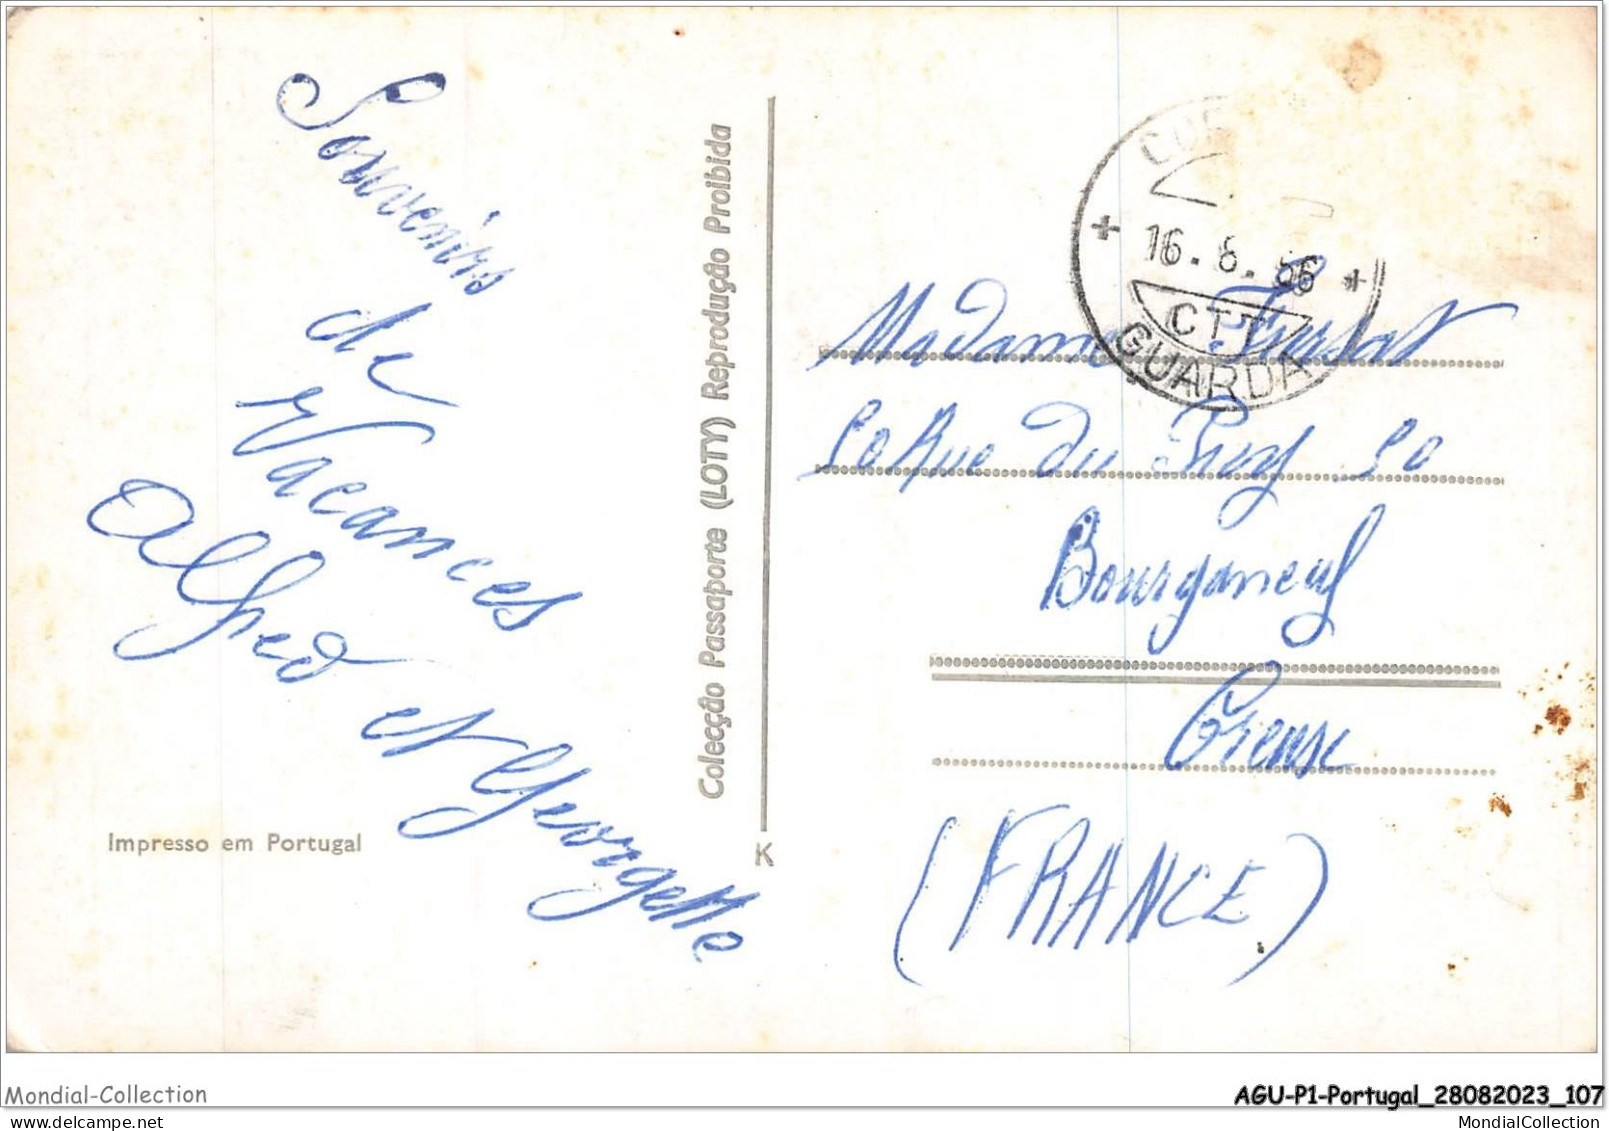 Souvenirs
de
Vacances
Alfred et Georgette
Impresso em Portugal
Colecção Passaporte (LOTY) Reprodução Proibida
K
+ 16. 8. 66 +
CTT
GUARDA
Madame
Rue du
Bourganeuf
Creuse
(FRANCE)
Mondial-Collection
AGU-P1-Portugal_28082023_107
MondialCollection